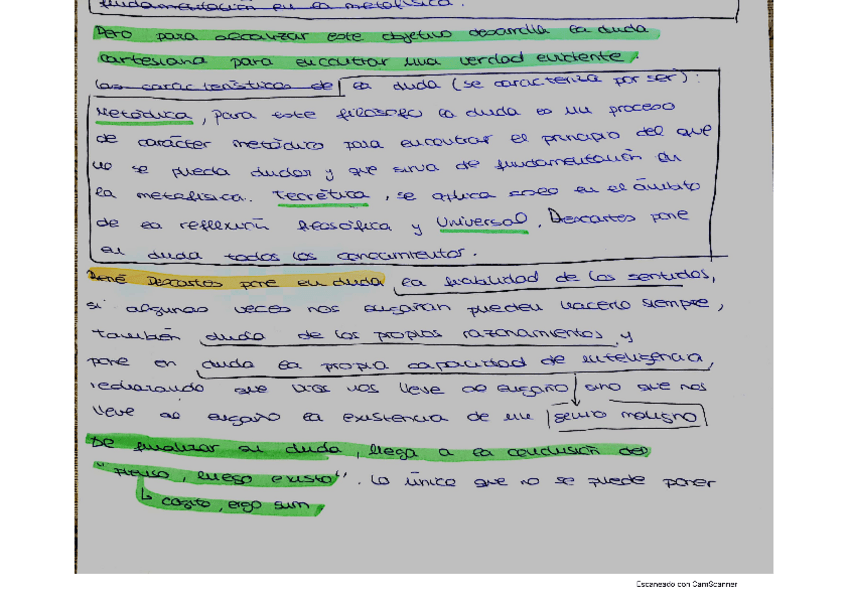 fundamentación en la metafísica.
Pero para alcanzar este objetivo desarrolla la duda
cartesiana para encontrar una verdad evidente.
Las características de la duda (se caracteriza por ser):
Metódica, para este filósofo la duda es un proceso
de carácter metódico para encontrar el principio del que
no se pueda dudar y que sirva de fundamentación en
la metafísica. Teorética, se aplica solo en el ámbito
de la reflexión filosófica y Universal, Descartes pone
en duda todos los conocimientos.
René Descartes pone en duda la fiabilidad de los sentidos,
si algunas veces nos engañan pueden hacerlo siempre,
también duda de los propios razonamientos y
pone en duda la propia capacidad de inteligencia,
rechazando que Dios nos lleve al engaño sino que nos
lleve al engaño la existencia de un genio maligno
De finalizar su duda, llega a la conclusión del
"pienso, luego existo". Lo único que no se puede poner
↳ cogito, ergo sum
Escaneado con CamScanner